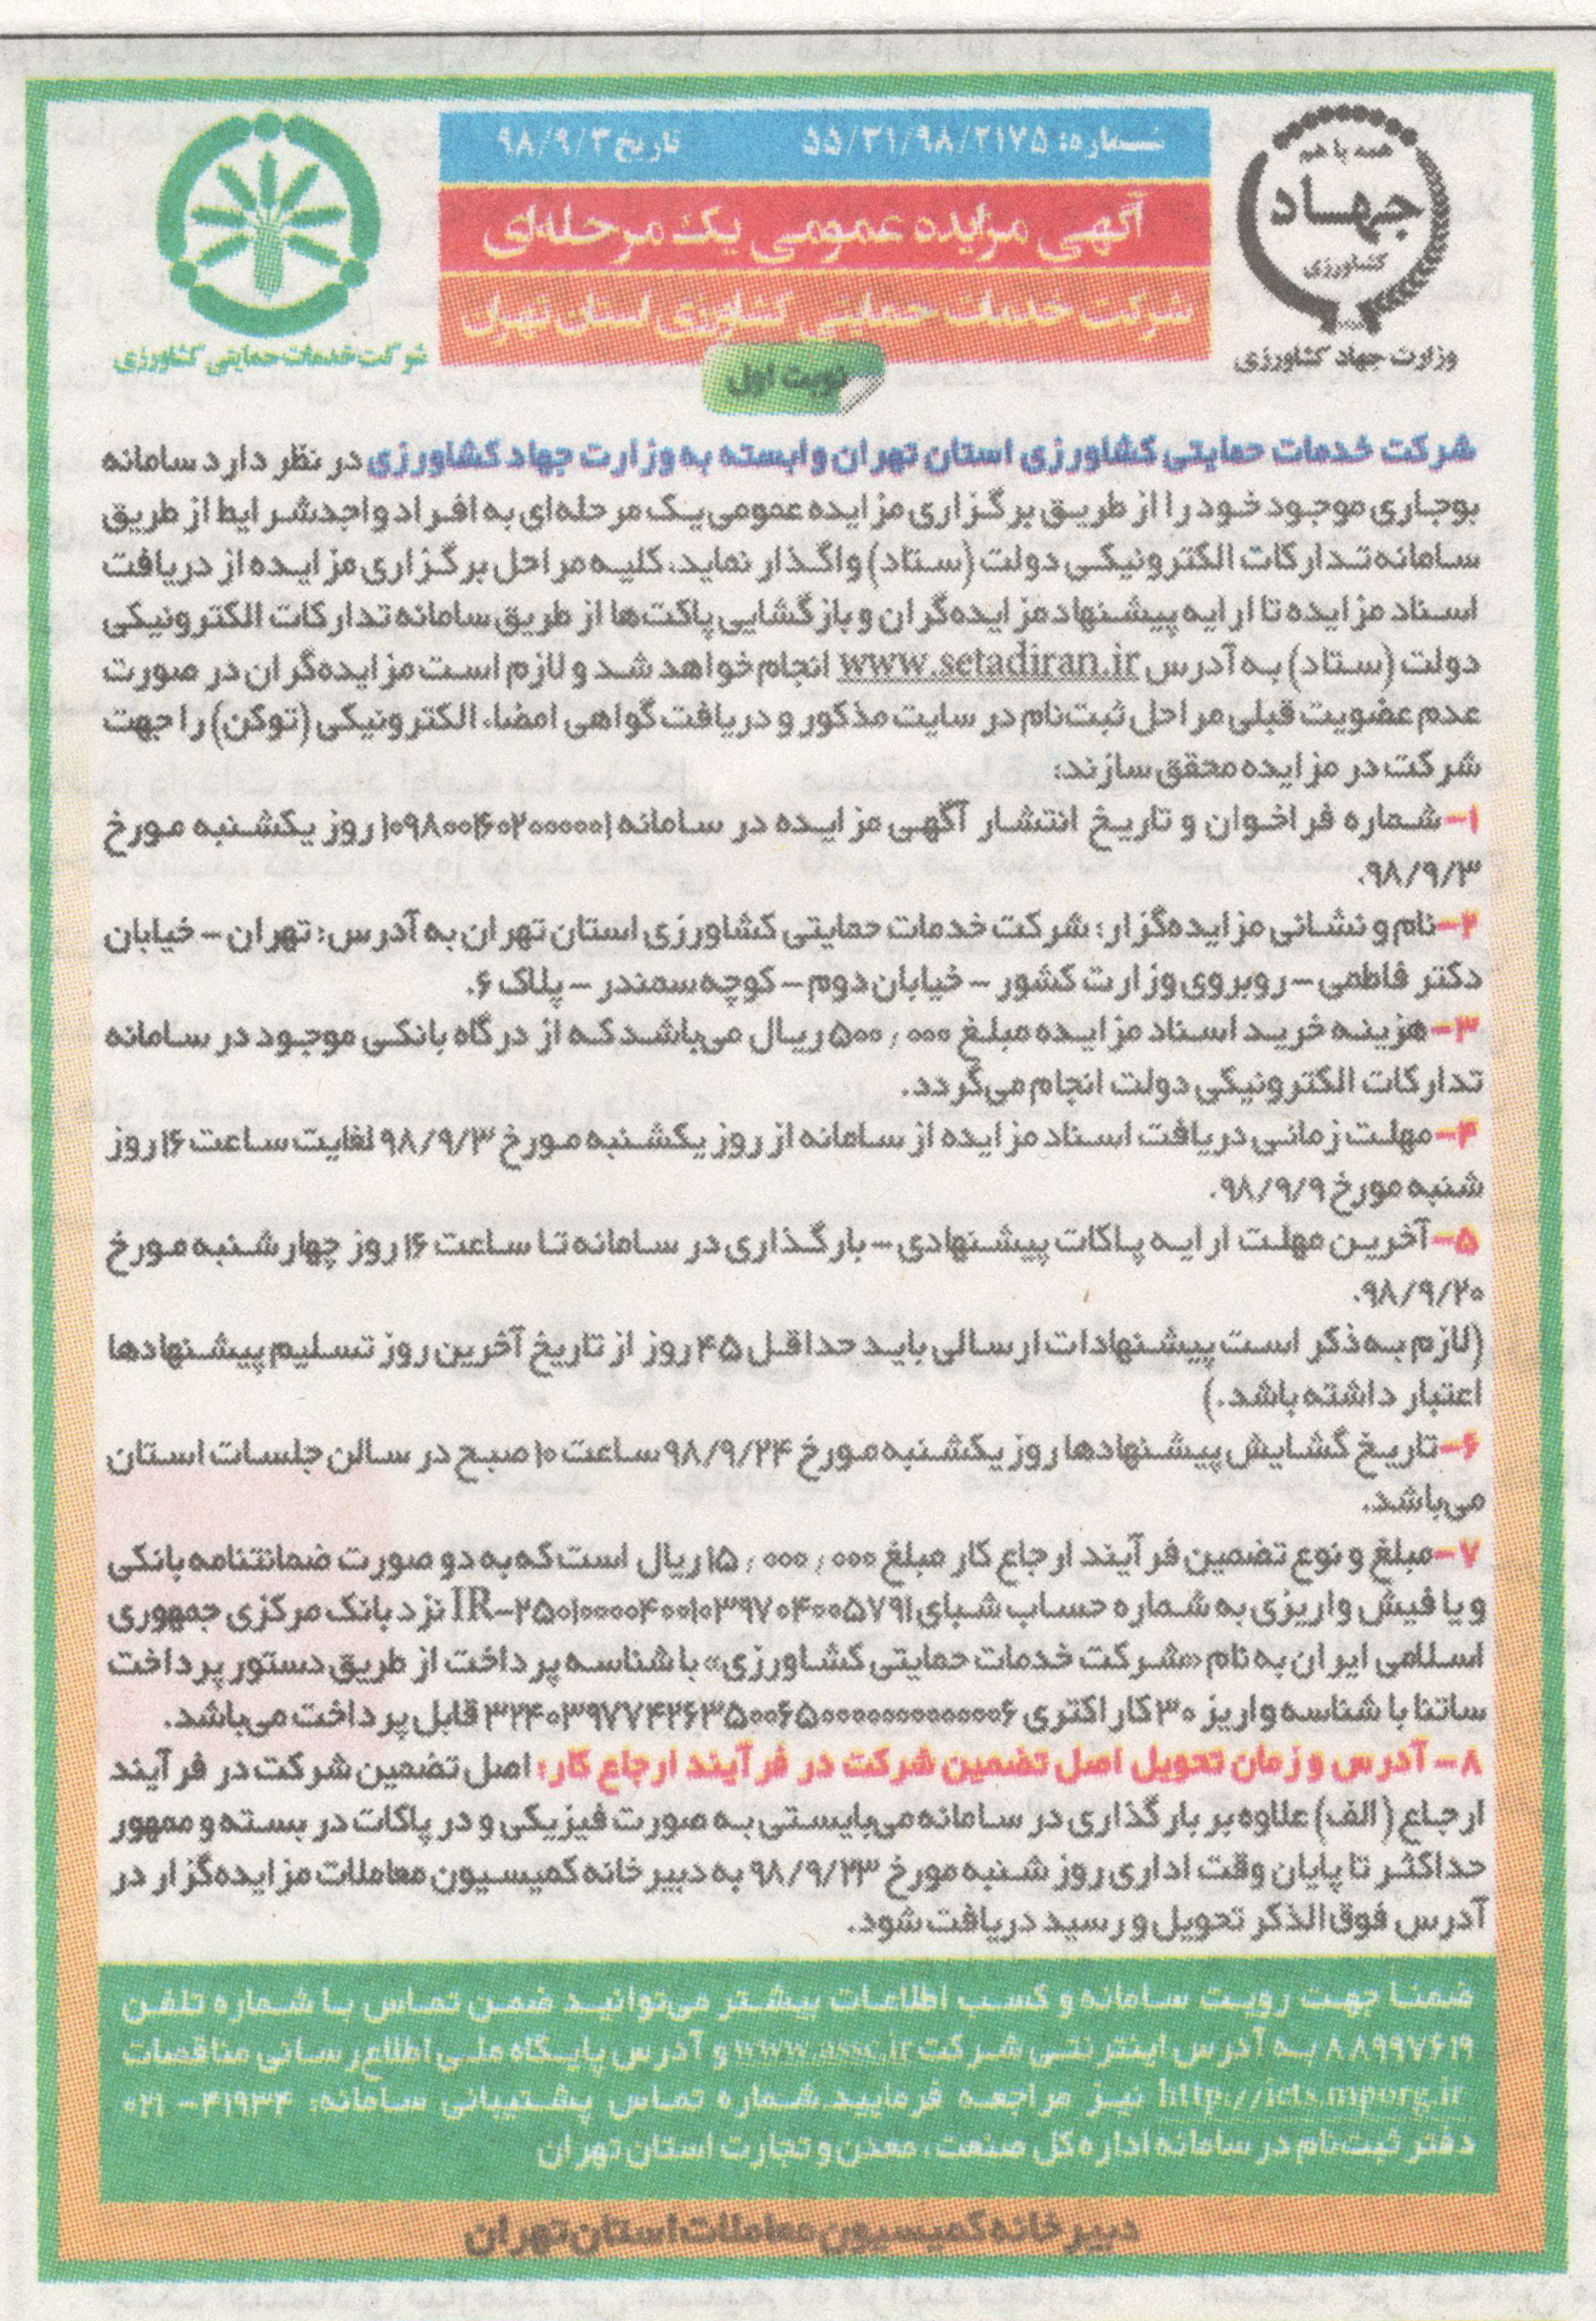 همه با هم
جهاد
کشاورزی
وزارت جهاد کشاورزی
شماره: ۵۵/۳۱/۹۸/۲۱۷۵ تاریخ ۹۸/۹/۳
آگهی مزایده عمومی یک مرحله‌ای
شرکت خدمات حمایتی کشاورزی استان تهران
نوبت اول
شرکت خدمات حمایتی کشاورزی
شرکت خدمات حمایتی کشاورزی استان تهران وابسته به وزارت جهاد کشاورزی در نظر دارد سامانه
بوجاری موجود خود را از طریق برگزاری مزایده عمومی یک مرحله‌ای به افراد واجد شرایط از طریق
سامانه تدارکات الکترونیکی دولت (ستاد) واگذار نماید، کلیه مراحل برگزاری مزایده از دریافت
اسناد مزایده تا ارایه پیشنهاد مزایده‌گران و بازگشایی پاکت‌ها از طریق سامانه تدارکات الکترونیکی
دولت (ستاد) به آدرس www.setadiran.ir انجام خواهد شد و لازم است مزایده‌گران در صورت
عدم عضویت قبلی مراحل ثبت‌نام در سایت مذکور و دریافت گواهی امضاء الکترونیکی (توکن) را جهت
شرکت در مزایده محقق سازند:
۱- شماره فراخوان و تاریخ انتشار آگهی مزایده در سامانه ۱۰۹۸۰۰۴۶۰۲۰۰۰۰۰۱ روز یکشنبه مورخ
۹۸/۹/۳.
۲- نام و نشانی مزایده‌گزار: شرکت خدمات حمایتی کشاورزی استان تهران به آدرس: تهران - خیابان
دکتر فاطمی - روبروی وزارت کشور - خیابان دوم - کوچه سمندر - پلاک ۶.
۳- هزینه خرید اسناد مزایده مبلغ ۵۰۰,۰۰۰ ریال می‌باشد که از درگاه بانکی موجود در سامانه
تدارکات الکترونیکی دولت انجام می‌گردد.
۴- مهلت زمانی دریافت اسناد مزایده از سامانه از روز یکشنبه مورخ ۹۸/۹/۳ لغایت ساعت ۱۶ روز
شنبه مورخ ۹۸/۹/۹.
۵- آخرین مهلت ارایه پاکات پیشنهادی - بارگذاری در سامانه تا ساعت ۱۶ روز چهارشنبه مورخ
۹۸/۹/۲۰.
(لازم به ذکر است پیشنهادات ارسالی باید حداقل ۴۵ روز از تاریخ آخرین روز تسلیم پیشنهادها
اعتبار داشته باشد.)
۶- تاریخ گشایش پیشنهادها روز یکشنبه مورخ ۹۸/۹/۲۴ ساعت ۱۰ صبح در سالن جلسات استان
می‌باشد.
۷- مبلغ و نوع تضمین فرآیند ارجاع کار مبلغ ۱۵,۰۰۰,۰۰۰ ریال است که به دو صورت ضمانتنامه بانکی
و یا فیش واریزی به شماره حساب شبای نزد بانک مرکزی جمهوری
اسلامی ایران به نام «شرکت خدمات حمایتی کشاورزی» با شناسه پرداخت از طریق دستور پرداخت
ساتنا با شناسه واریز ۳۰ کاراکتری قابل پرداخت می‌باشد.
۸- آدرس و زمان تحویل اصل تضمین شرکت در فرآیند ارجاع کار: اصل تضمین شرکت در فرآیند
ارجاع (الف) علاوه بر بارگذاری در سامانه می‌بایستی به صورت فیزیکی و در پاکات در بسته و ممهور
حداکثر تا پایان وقت اداری روز شنبه مورخ ۹۸/۹/۲۳ به دبیرخانه کمیسیون معاملات مزایده‌گزار در
آدرس فوق‌الذکر تحویل و رسید دریافت شود.
ضمنا جهت رویت سامانه و کسب اطلاعات بیشتر می‌توانید ضمن تماس با شماره تلفن
۸۸۹۹۷۶۱۹ به آدرس اینترنتی شرکت www.assc.ir و آدرس پایگاه ملی اطلاع‌رسانی مناقصات
http://iets.mporg.ir نیز مراجعه فرمایید. شماره تماس پشتیبانی سامانه: ۴۱۹۳۴ - ۰۲۱
دفتر ثبت‌نام در سامانه اداره کل صنعت، معدن و تجارت استان تهران
دبیرخانه کمیسیون معاملات استان تهران